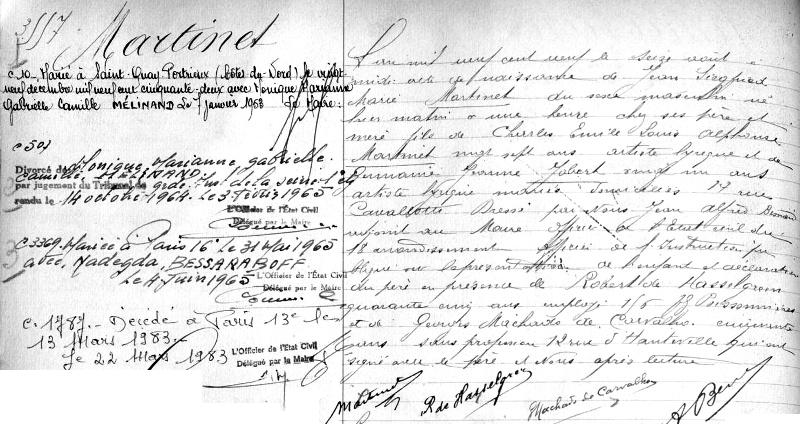 3557
Martinet
c.10_ Marié à Saint-Quay Portrieux (Côtes du Nord) le vingt
neuf décembre mil neuf cent cinquante-deux avec Monique Marianne
Gabrielle Camille MÉLINAND Le 7 janvier 1953 Le Maire:
c 501
Divorcé de Monique Marianne Gabrielle
Camille MELINAND
par jugement du Tribunal de gde Inst de la Seine 1e
rendu le 14 octobre 1964. Le 3 février 1965
L'Officier de l'État Civil
Délégué par le Maire
c.3369. Marié à Paris 16e le 31 Mai 1965
avec Nadegda, BESSARABOFF
Le 4 Juin 1965
L'Officier de l'État Civil
Délégué par le Maire
c. 1787.- Décédé à Paris 13e le
13 Mars 1983.-
Le 22 Mars 1983
L'Officier de l'État Civil
Délégué par le Maire
L'an mil neuf cent neuf le seize août à
midi acte de naissance de Jean Siegfried
Marie Martinet du sexe masculin né
hier matin à une heure chez ses père et
mère fils de Charles Emile Louis Alphonse
Martinet vingt sept ans artiste lyrique et de
Germaine Jeanne Jobert vingt un ans
artiste lyrique mariés domiciliés 17 rue
Cavallotti Dressé par Nous Jean Alfred
adjoint au Maire officier de l'Etat civil du
18 arrondissement officier de l'Instruction pu
blique sur la présentation de l'enfant et déclaration
du père en présence de Robert de Hasselgrom
quarante cinq ans employé Poissonnière
et de Georges Machado de Carvalho cinquante
ans sans profession 12 rue d'Hauteville qui ont
signé avec le père et Nous après lecture
Martinet R de Hasselgrom Machado de Carvalho